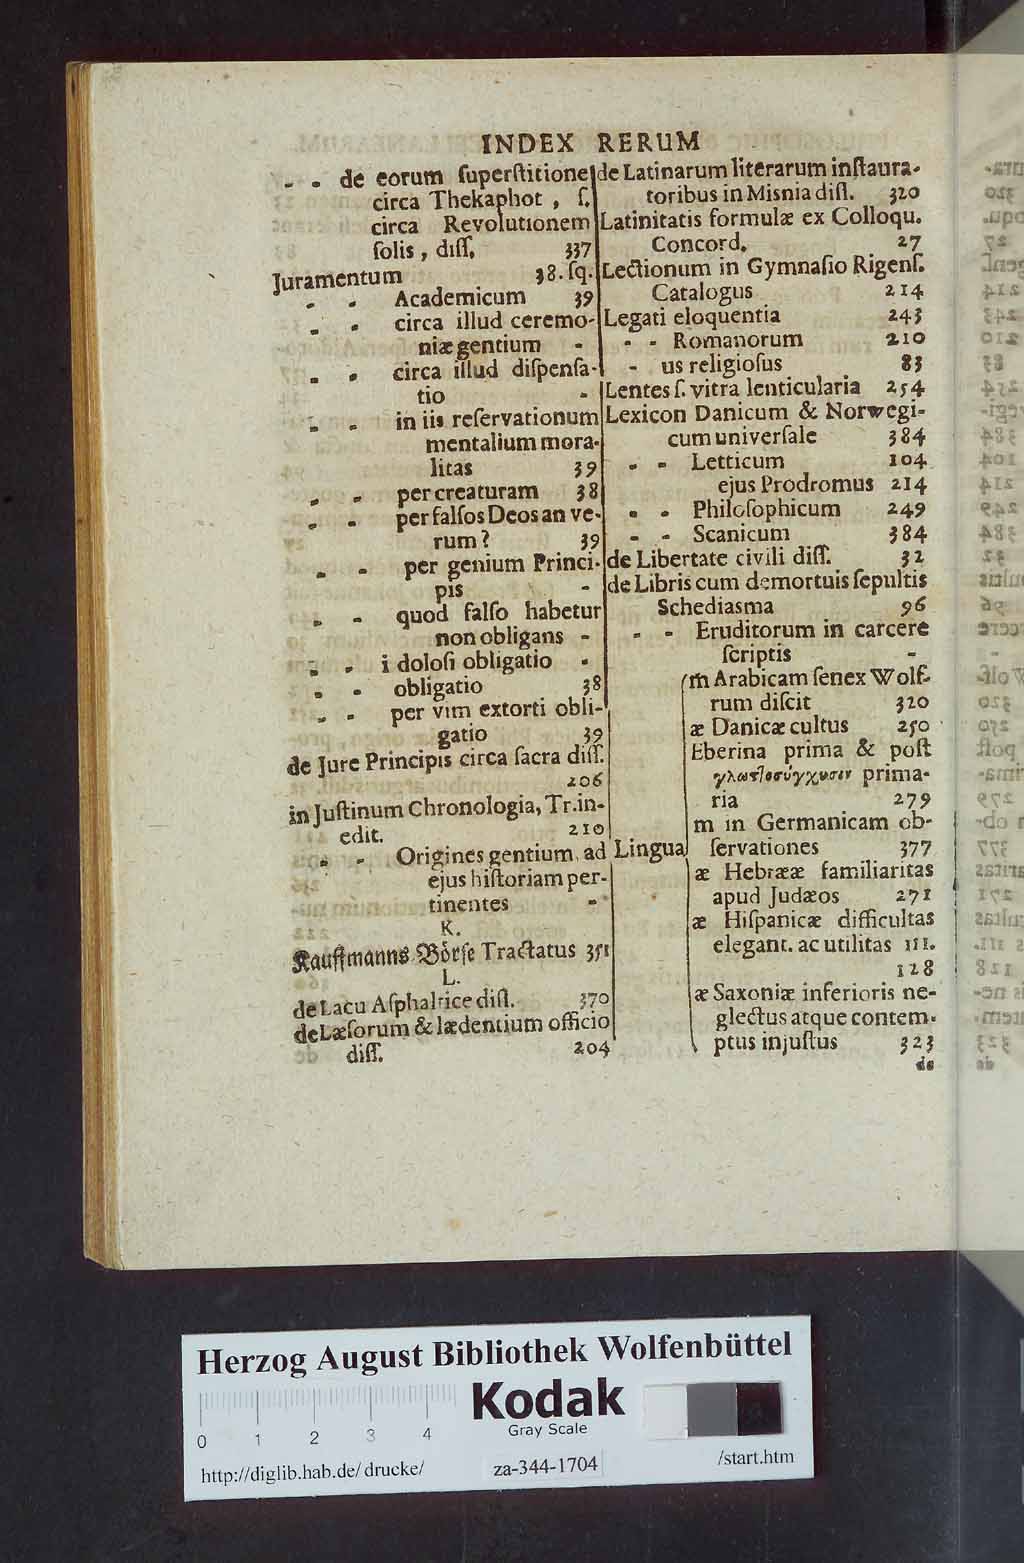 INDEX RERUM
- - de eorum ſuperſtitione
circa Thekaphot, ſ.
circa Revolutionem
ſolis, diſſ. 337
Juramentum 38. ſq.
- - Academicum 39
- - circa illud ceremo-
niæ gentium -
- - circa illud diſpenſa-
tio -
- - in iis reſervationum
mentalium mora-
litas 39
- - per creaturam 38
- - per falſos Deos an ve-
rum? 39
- - per genium Princi-
pis -
- - quod falſo habetur
non obligans -
- - i doloſi obligatio -
- - obligatio 38
- - per vim extorti obli-
gatio 39
de Jure Principis circa ſacra diſſ.
206
in Juſtinum Chronologia, Tr. in-
edit. 210
- - Origines gentium, ad
ejus hiſtoriam per-
tinentes -
K.
Kauffmanns Börſe Tractatus 351
L.
de Lacu Aſphaltice diſſ. 370
de Læſorum & lædentium officio
diſſ. 204
de Latinarum literarum inſtaura-
toribus in Misnia diſſ. 320
Latinitatis formulæ ex Colloqu.
Concord. 27
Lectionum in Gymnaſio Rigenſ.
Catalogus 214
Legati eloquentia 243
- - Romanorum 210
- us religioſus 83
Lentes ſ. vitra lenticularia 254
Lexicon Danicum & Norwegi-
cum univerſale 384
- - Letticum 104
ejus Prodromus 214
- - Philoſophicum 249
- - Scanicum 384
de Libertate civili diſſ. 32
de Libris cum demortuis ſepultis
Schediasma 96
- - Eruditorum in carcere
ſcriptis -
m Arabicam ſenex Wolf-
rum diſcit 320
æ Danicæ cultus 250
Eberina prima & poſt
γλωττοσύγχυσιν prima-
ria 279
m in Germanicam ob-
Lingua ſervationes 377
æ Hebrææ familiaritas
apud Judæos 271
æ Hiſpanicæ difficultas
elegant. ac utilitas 111.
128
æ Saxoniæ inferioris ne-
glectus atque contem-
ptus injuſtus 323
de
Herzog August Bibliothek Wolfenbüttel
Kodak
Gray Scale
0 1 2 3 4
http://diglib.hab.de/drucke/ za-344-1704 /start.htm